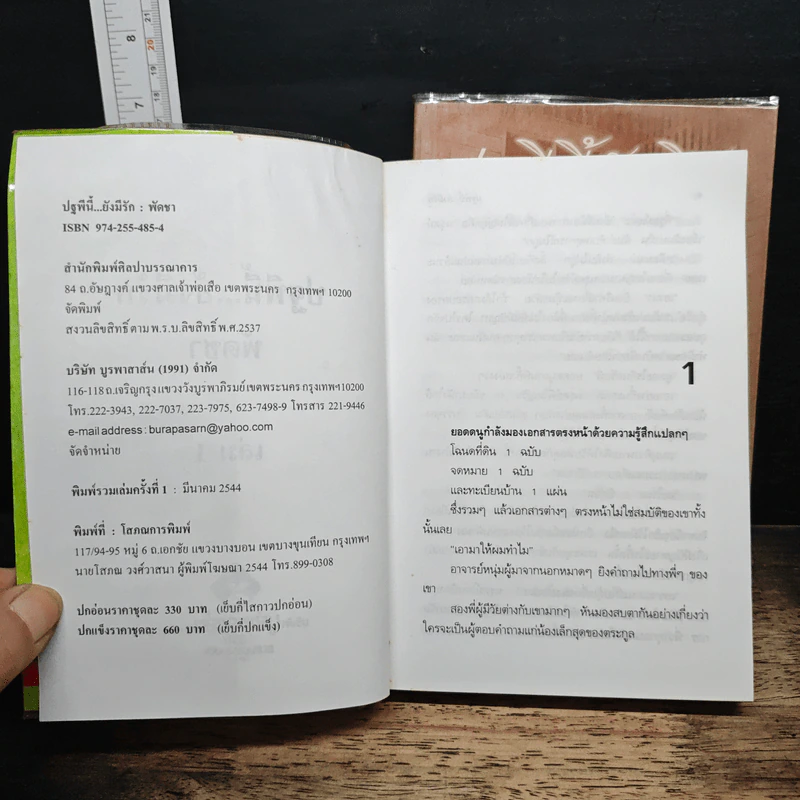 8
7
21
20
19
18
17
ปฐพีนี้...ยังมีรัก : พัดชา
ISBN 974-255-485-4
สำนักพิมพ์ศิลปาบรรณาคาร
84 ถ.อัษฎางค์ แขวงศาลเจ้าพ่อเสือ เขตพระนคร กรุงเทพฯ 10200
จัดพิมพ์
สงวนลิขสิทธิ์ ตาม พ.ร.บ.ลิขสิทธิ์ พ.ศ.2537
บริษัท บูรพาสาส์น (1991) จำกัด
116-118 ถ.เจริญกรุง แขวงวังบูรพาภิรมย์ เขตพระนคร กรุงเทพฯ10200
โทร.222-3943, 222-7037, 223-7975, 623-7498-9 โทรสาร 221-9446
e-mail address : burapasarn@yahoo.com
จัดจำหน่าย
พิมพ์รวมเล่มครั้งที่ 1 : มีนาคม 2544
พิมพ์ที่ : โสภณการพิมพ์
117/94-95 หมู่ 6 ถ.เอกชัย แขวงบางบอน เขตบางขุนเทียน กรุงเทพฯ
นายโสภณ วงศ์วาสนา ผู้พิมพ์โฆษณา 2544 โทร.899-0308
ปกอ่อนราคาชุดละ 330 บาท (เย็บกี่ไสกาวปกอ่อน)
ปกแข็งราคาชุดละ 660 บาท (เย็บกี่ปกแข็ง)
1
ยอดดนูกำลังมองเอกสารตรงหน้าด้วยความรู้สึกแปลกๆ
โฉนดที่ดิน 1 ฉบับ
จดหมาย 1 ฉบับ
และทะเบียนบ้าน 1 แผ่น
ซึ่งรวมๆ แล้วเอกสารต่างๆ ตรงหน้าไม่ใช่สมบัติของเขาทั้ง
นั้นเลย
"เอามาให้ผมทำไม"
อาจารย์หนุ่มผู้มาจากนอกหมาดๆ ยิงคำถามไปทางพี่ๆ ของ
เขา
สองพี่ผู้มีวัยต่างกับเขามากๆ หันมองสบตากันอย่างเกี่ยงว่า
ใครจะเป็นผู้ตอบคำถามแก่น้องเล็กสุดของตระกูล